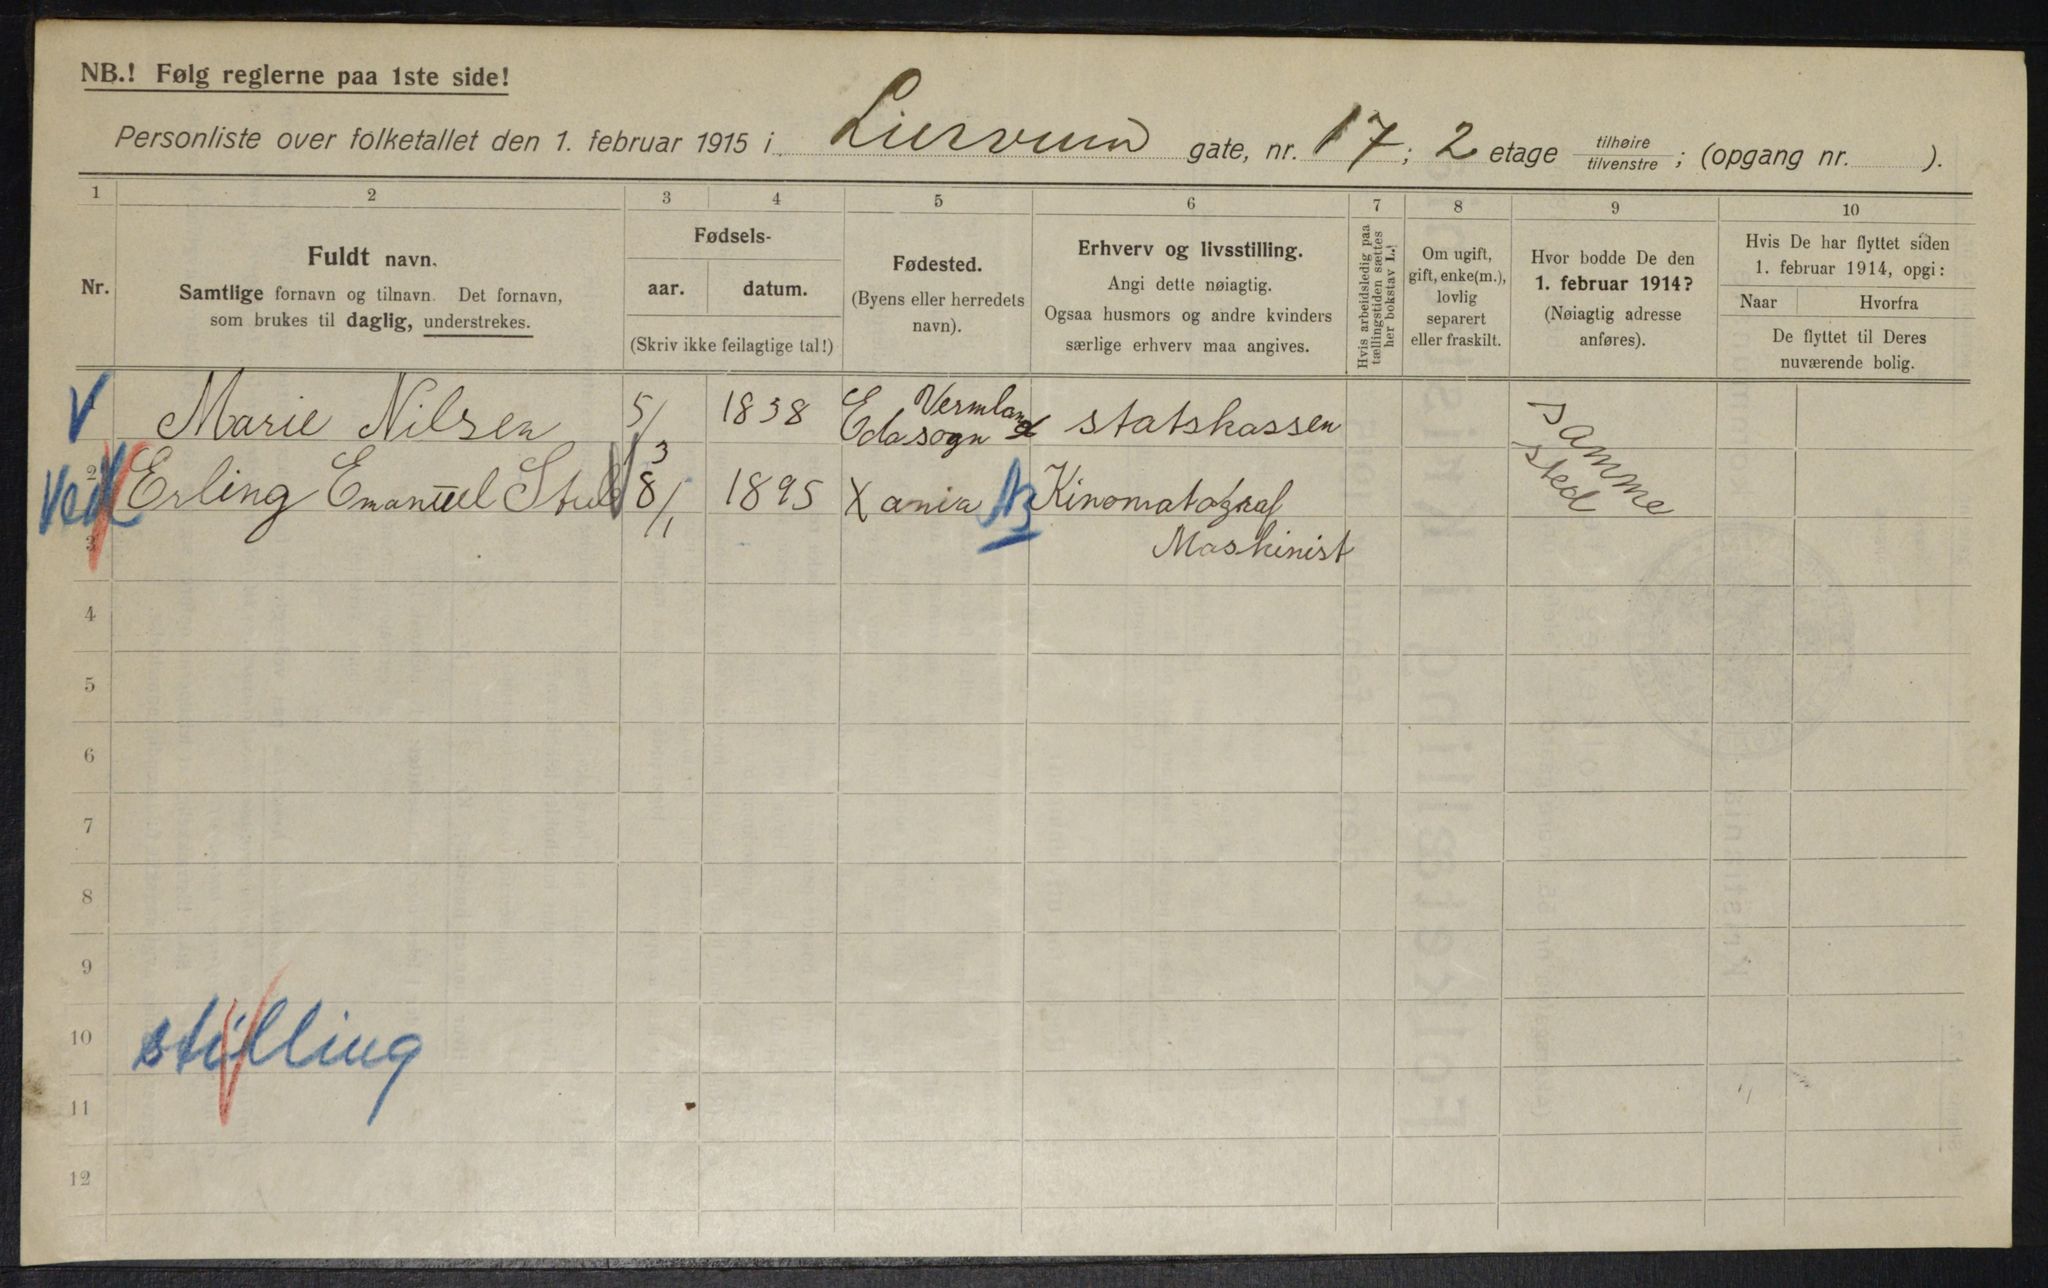 NB.! Følg reglerne paa 1ste side!
Personliste over folketallet den 1. februar 1915 i gate, nr. 17; 2 etage tilhøire tilvenstre; (opgang nr. ).
1 2 3 4 5 6 7 8 9 10
Nr.
Fuldt navn.
Samtlige fornavn og tilnavn. Det fornavn,
som brukes til daglig, understrekes.
Fødsels-
aar. datum.
(Skriv ikke feilagtige tal!)
Fødested.
(Byens eller herredets
navn).
Erhverv og livsstilling.
Angi dette nøiagtig.
Ogsaa husmors og andre kvinders
særlige erhverv maa angives.
Hvis arbeidsledig paa
tællingstiden sættes
her bokstav L.!
Om ugift,
gift, enke(m.),
lovlig
separert
eller fraskilt.
Hvor bodde De den
1. februar 1914?
(Nøiagtig adresse
anføres).
Hvis De har flyttet siden
1. februar 1914, opgi:
Naar Hvorfra
De flyttet til Deres
nuværende bolig.
Marie Nilsen 5/3 1838 Vermland Edasogn statskassen samme sted
2 Erling Emanuel 8/1 1895 Xania Kinomatograf
Maskinist
3
4
5
6
7
8
9
10 stilling
11
12